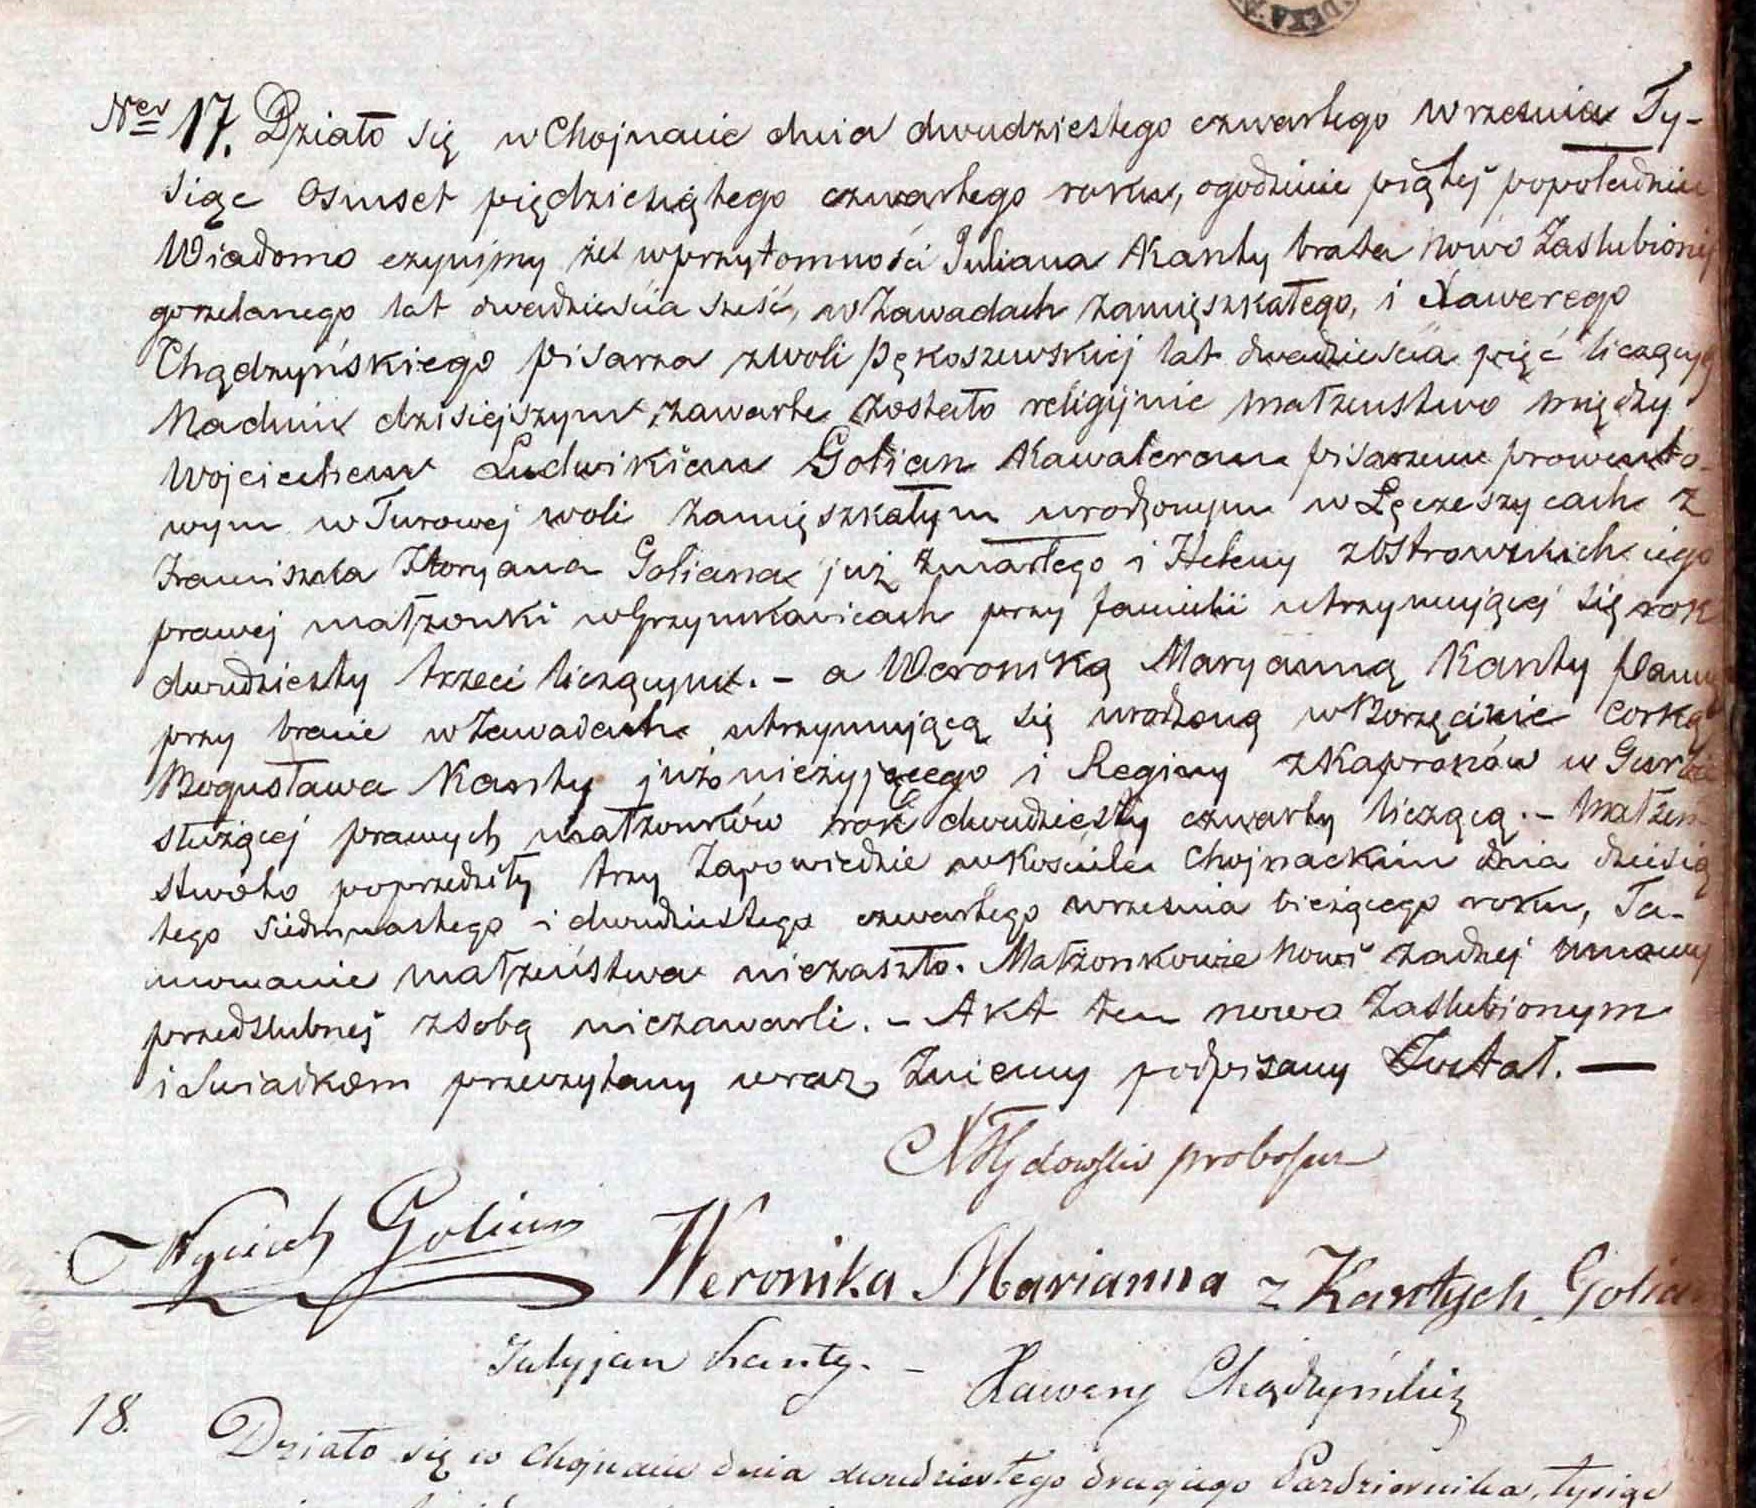 Ner 17. Działo się w Chojnacie dnia dwudziestego czwartego września Ty-
siąc osmset pięćdziesiątego czwartego roku, ogodzinie piątej popołudniu
Wiadomo czynimy że wprzytomności Juliana Kanty brata nowo Zaslubionej
gorzelanego lat dwadzieścia sześć, w Zawadach zamięszkałego, i Xawerego
Chądzyńskiego pisarza zwoli pękoszewskiej lat dwadzieścia pięć liczących
Nadniu dzisiejszym zawarte zostało religijnie małżenstwo między
Wojciechem Ludwikiem Golian Kawalerem pisarzem prowento-
wym w Turowej woli zamięszkałym urodzonym w Łęczeszycach z
Franciszka Floryana Goliana już zmarłego i Heleny zOstrowskich iego
prawej małżonki wGrzymkowicach przy familii utrzymującej się rok
dwudziesty trzeci liczącym. - a Weroniką Maryanną Kanty panną
przy bracie w Zawadach utrzymującą się urodzoną w Borzęcinie Corką
Bogusława Kanty już nieżyjącego i Reginy zKapronów w
służącej prawych małżonków rok dwudziesty czwarty liczącą. - Małżeń-
stwo to poprzedziły trzy Zapowiedzie wKościele Chojnackim dnia dziesią
tego siedmnastego i dwudziestego czwartego września bieżącego roku, Ta-
mowanie małżeństwa niezaszło. Małżonkowie nowi żadnej umowy
przedslubnej zsobą niezawarli. - Akt ten nowo Zaslubionym
i Swiadkom przeczytany wraz Zniemy podpisany Został. —
proboszcz
Wojciech Golian Weronika Marianna z Kantych Golian
Julyjan Kanty. - Xawery Chądzyński
18. Działo się w Chojnacie dnia dwudziestego drugiego Pazdziernika, tysiąc